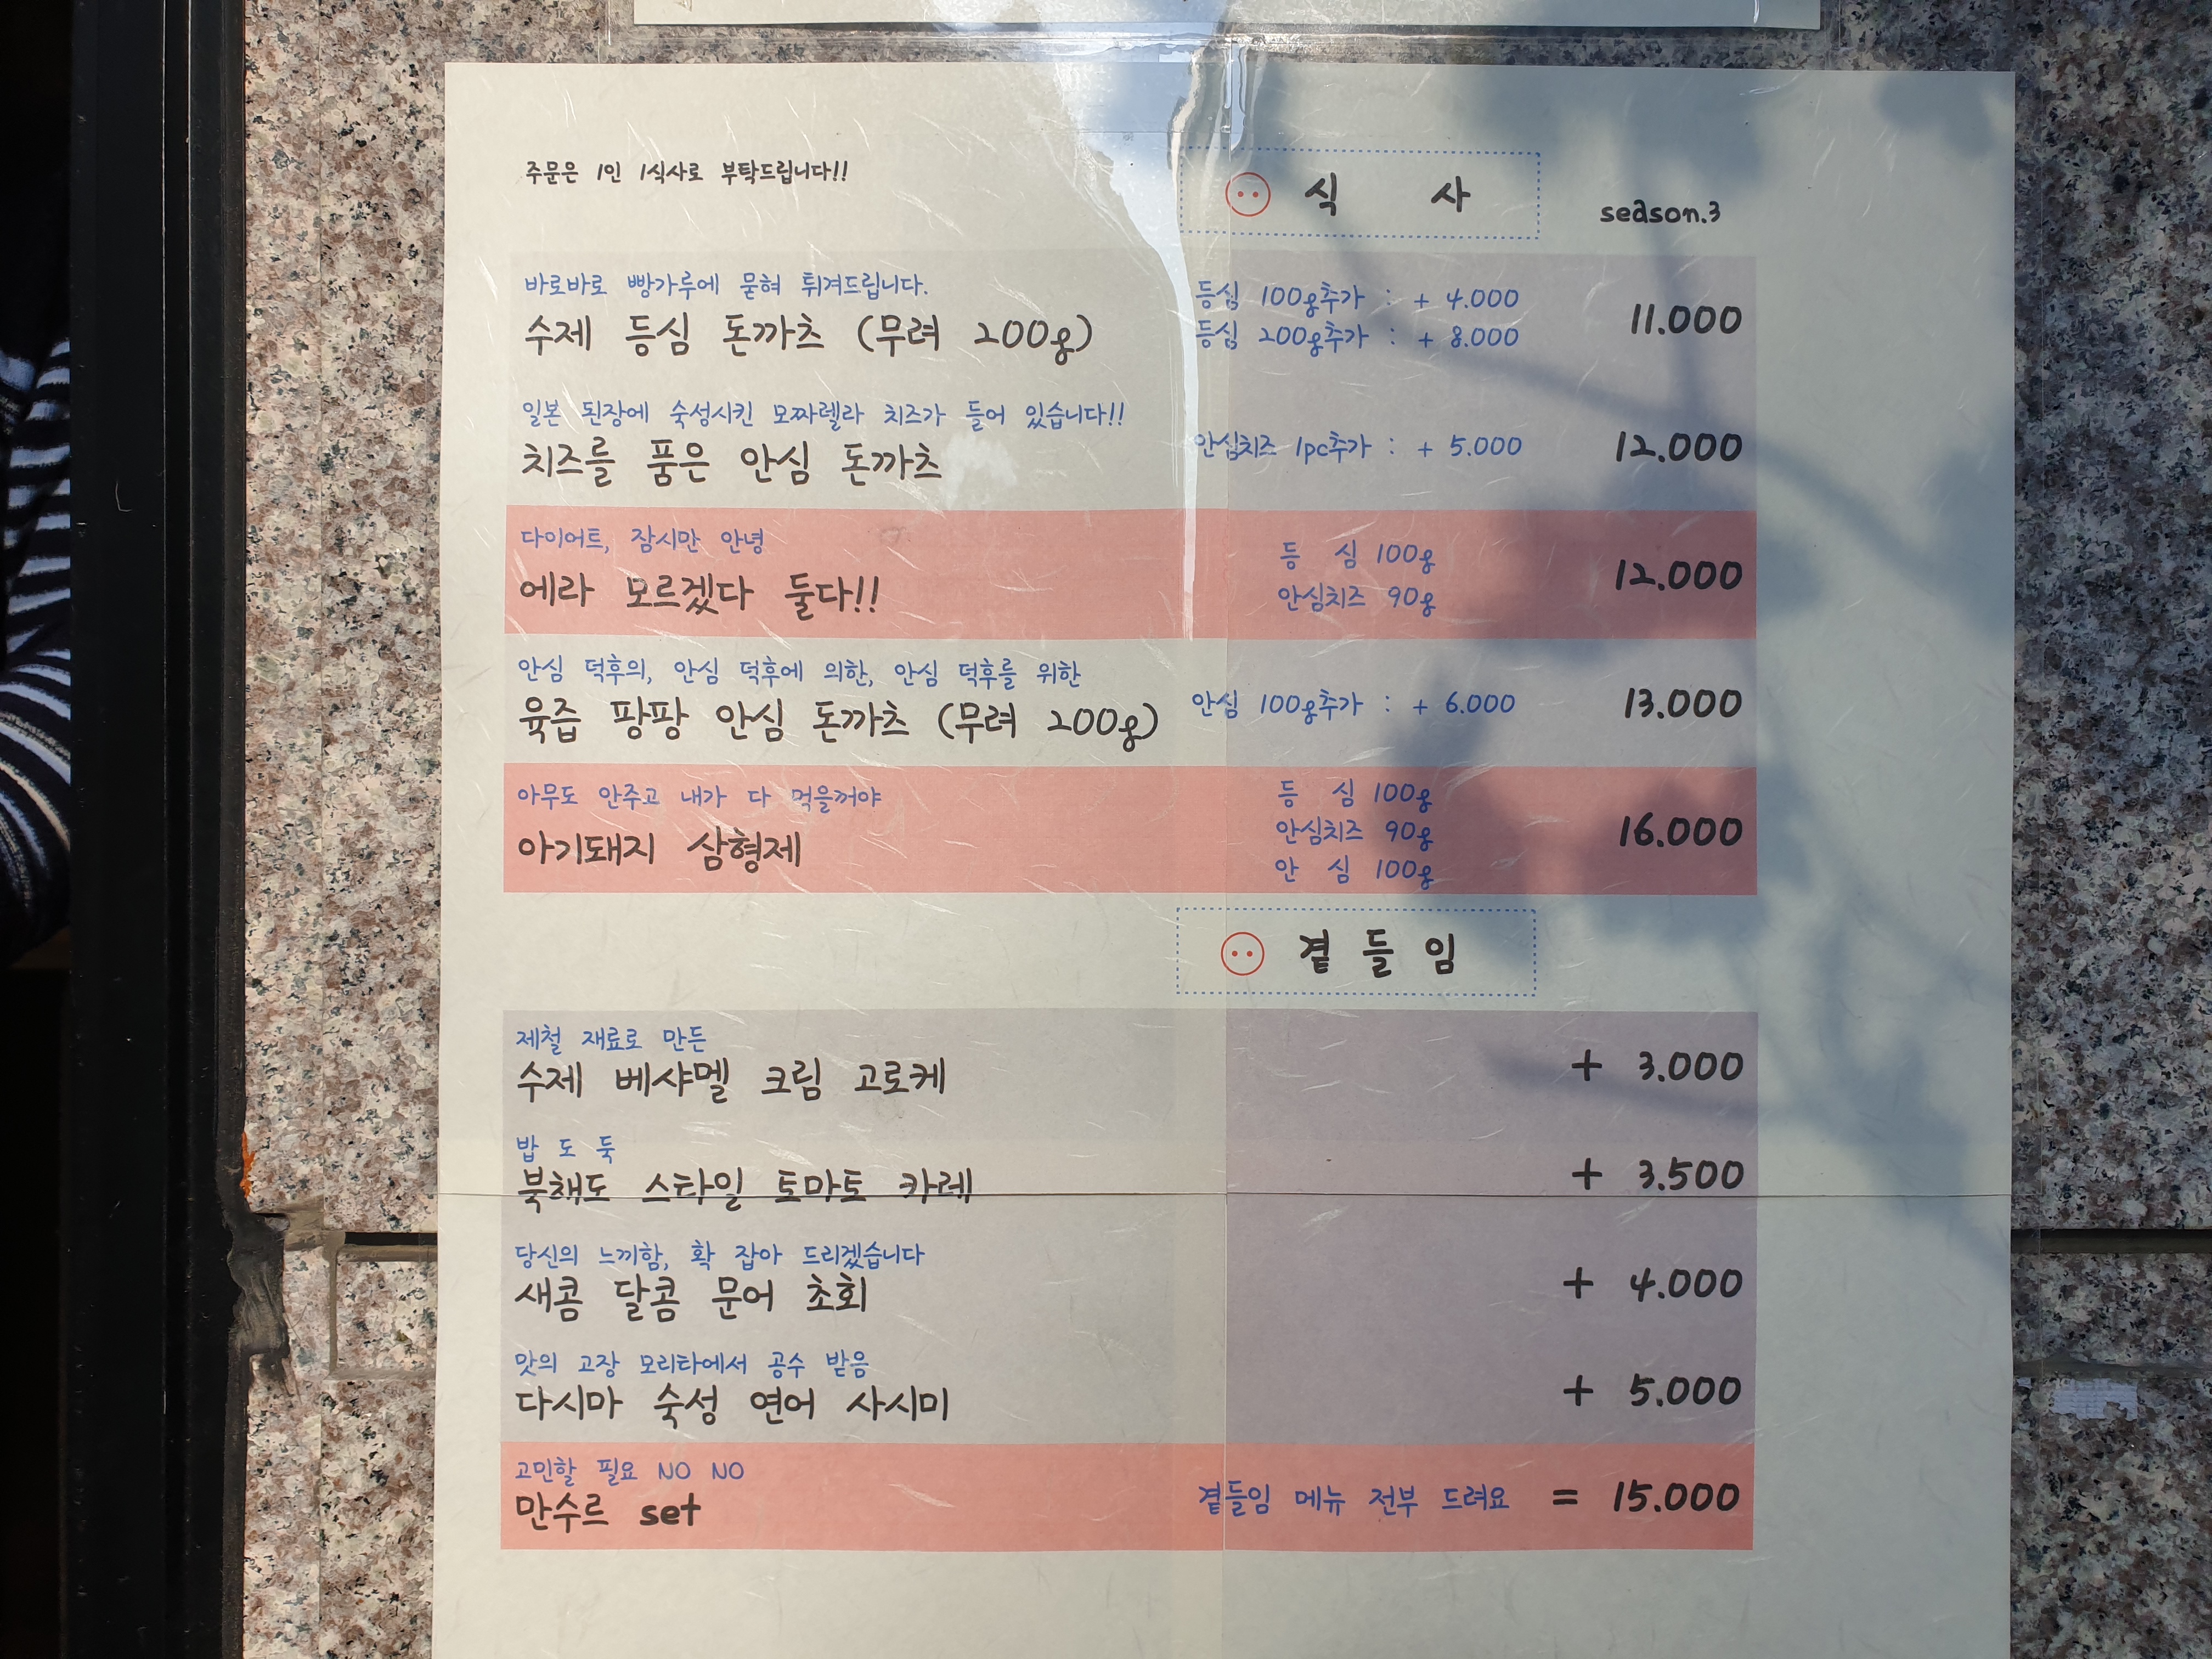 주문은 1인 1식사로 부탁드립니다!!
식 사
season.3
바로바로 빵가루에 묻혀 튀겨드립니다.
수제 등심 돈까츠 (무려 200g)
등심 100g추가 : + 4.000
등심 200g추가 : + 8.000
11.000
일본 된장에 숙성시킨 모짜렐라 치즈가 들어 있습니다!!
치즈를 품은 안심 돈까츠
안심치즈 1pc추가 : + 5.000
12.000
다이어트, 잠시만 안녕
에라 모르겠다 둘다!!
등 심 100g
안심치즈 90g
12.000
안심 덕후의, 안심 덕후에 의한, 안심 덕후를 위한
육즙 팡팡 안심 돈까츠 (무려 200g)
안심 100g추가 : + 6.000
13.000
아무도 안주고 내가 다 먹을꺼야
아기돼지 삼형제
등 심 100g
안심치즈 90g
안 심 100g
16.000
곁들임
제철 재료로 만든
수제 베샤멜 크림 고로케
+ 3.000
밥 도 둑
북채도 스타일 토마토 카레
+ 3.500
당신의 느끼함, 확 잡아 드리겠습니다
새콤 달콤 문어 초회
+ 4.000
맛의 고장 모리타에서 공수 받음
다시마 숙성 연어 사시미
+ 5.000
고민할 필요 NO NO
만수르 set
곁들임 메뉴 전부 드려요 = 15.000